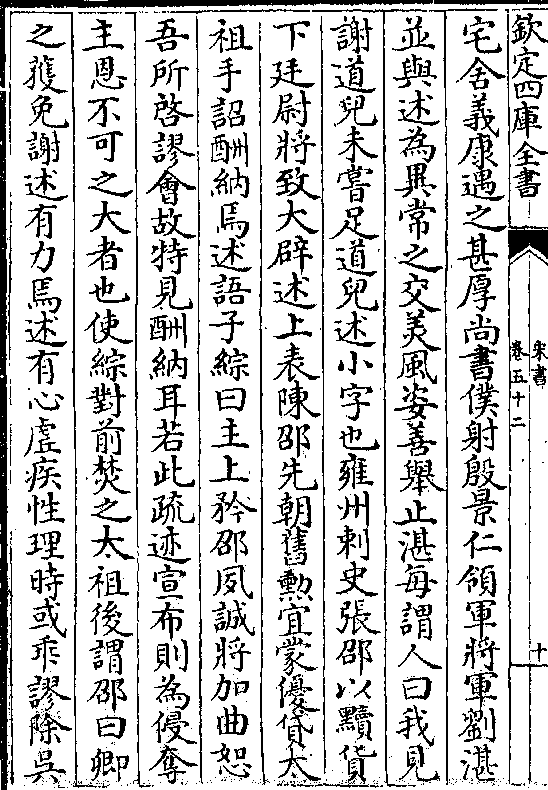 欽定四庫全書
宋書
卷五十二
十
宅舍義康遇之甚厚尚書僕射殷景仁領軍將軍劉湛
並與述為異常之交美風姿善舉止湛每謂人曰我見
謝道兒未嘗足道兒述小字也雍州刺史張邵以黷貨
下廷尉將致大辟述上表陳邵先朝舊勲宜蒙優貸太
祖手詔酬納焉述語子綜曰主上矜邵夙誠將加曲恕
吾所啓謬會故特見酬納耳若此疏迹宣布則為侵奪
主恩不可之大者也使綜對前焚之太祖後謂邵曰卿
之獲免謝述有力焉述有心虛疾性理時或乖謬除吳